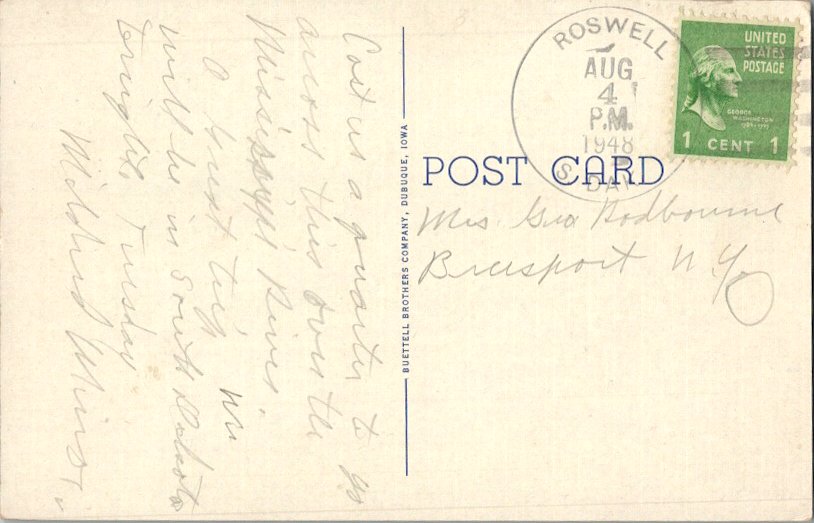 Cost us a quarter to go
across this over the
Mississippi River.
A Great trip we
will be in South Dakota
tonight, Tuesday
Mildred
BUETTELL BROTHERS COMPANY, DUBUQUE, IOWA
ROSWELL
AUG
4
P.M.
1948
S. DAK
UNITED
STATES
POSTAGE
GEORGE
WASHINGTON
1789-1797
1 CENT 1
POST CARD
Mrs. Geo Rodbourne
Breesport N.Y.